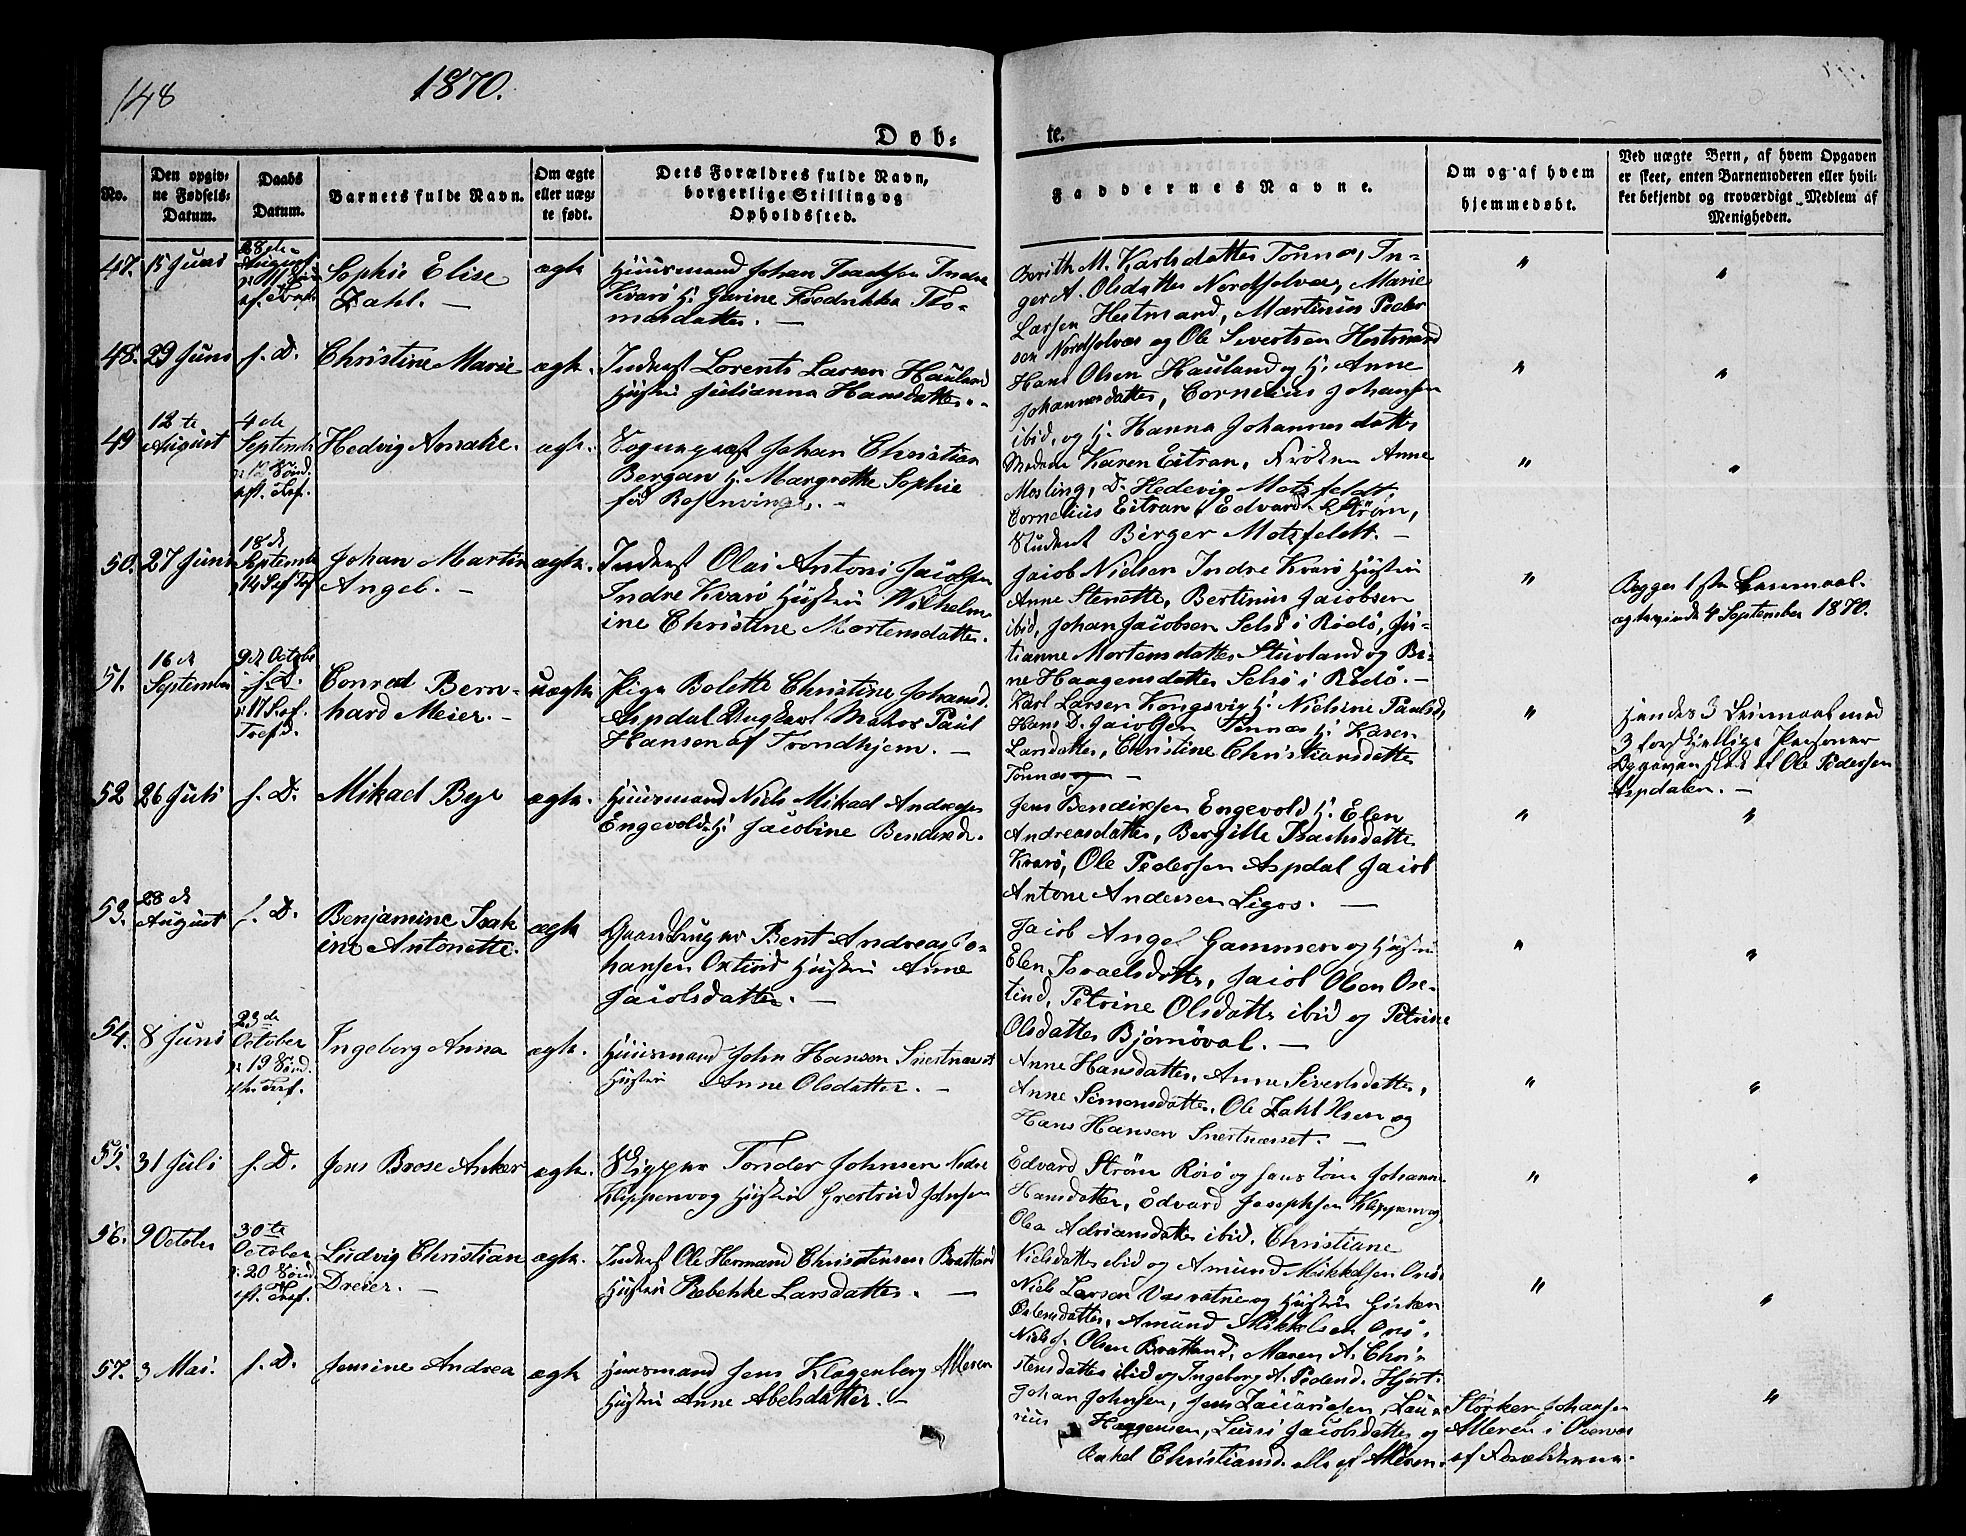 148
1870.
Døb-
te.
No.
Den opgiv-
ne Fødsels-
Datum.
Daabs
Datum.
Barnets fulde Navn.
Om ægte
eller uæg-
te født.
Dets Forældres fulde Navn,
borgerlige Stilling og
Opholdssted.
Faddernes Navne.
Om og af hvem
hjemmedøbt.
Ved uægte Børn, af hvem Opgaven
er skeet, enten Barnemoderen eller hvil-
ket bekjendt og troværdigt Medlem af
Menigheden.
47. 15 Juni
28de
August
Sophie Elise
Zahl. —
ægte
Huusmand Johan Isachsen Indre
Kvarø H. Gurine Fredrikka Tho-
masdatter. —
Berith M. Karlsdatter Tonnæs, In-
ger A. Olsdatter Nordsolvær, Marie
Larsen Hestmand, Martinus Peder
sen Nordsolvær og Ole Sivertsen Hestmand
48. 29 Juni
s. D.
Christine Marie
ægte.
Inderst Lorents Larsen Hauland
Hustru Julianna Hansdatter.
Hans Olsen Hauland og H. Anne
Johannesdatter, Cornelius Johansen
ibid, og H. Hanna Johannesdatter
49
12te
August
4de
September
Sønd.
eft. Tref.
Hedvig Amalie.
ægte.
Johan Christian
Bergan H. Margrethe Sophie
fød Rosenvinge. —
Madam Karen Eitran, Frøken Anne
Mosling, D. Hedevig Motzfeldt,
Cornelius Eitran, Edvard Strøm,
Student Birger Motzfeldt. —
50. 27 Juni
18de
September
14 S. ef. Tref.
Johan Martin
Angel. —
ægte.
Inderst Olai Antoni Jacobsen
Indre Kvarø Hustru Wilhelm
ine Christine Mortensdatter.
Jacob Nielsen Indre Kvarø Hustru
Anne Stenette, Bertinus Jacobsen
ibid, Johan Jacobsen Selsø i Rødø, Ju-
lianne Mortensdatter Stuvland og Bi-
ne Haagensdatter Selsø i Rødø. —
Begges 1ste Leiermaal.
ægteviede 4 September 1870.
51.
16de
September
9de Octobe
s. D.
17 S. ef.
Trefd.
Conrad Bern-
hard Meier. —
uægte
Pige Bolette Christine Johansd.
Aspdal Ungkarl Matros Paul
Hansen af Trondhjem. —
Karl Larsen Kongsvig H. Nielsine Paulsd.
Hans D. Jacobsen Tonnæs H. Karen
Larsdatter, Christine Christiansdatter
Tonnæs —
Hendes 3 Leiermaal med
3 forskjellige Personer
Opgaven skeet af Ole Pedersen
Aspdalen. —
52 26 Juli
s. D.
Mikael Bye
ægte.
Huusmand Niels Mikael Andreasen
Engevold H. Jacobine Bendixd.
Jens Bendixsen Engevold H. Elen
Andreasdatter, Bergitte Isachsdatter
Kvarø, Ole Pedersen Aspdal Jacob
Antone Andersen Ligos. —
53.
28de
August
s. D.
Benjamine Isak
ine Antonette.
ægte
Gaardbruger Bent Andreas Jo-
hansen Oxtind Hustru Anne
Jacobsdatter. —
Jacob Angel Gammen og Hustru
Elen Israelsdatter, Jacob Olsen Ox-
tind, Petrine Olsdatter ibid og Petrine
Olsdatter Bjørnøval. —
54. 8 Juni
23de
October
19 Sønd.
eft. Tref.
Ingeborg Anna
ægte.
Huusmand John Hansen Snertnæsset
Hustru Anne Olsdatter. —
Anne Hansdatter, Anne Sivertsdatter,
Anne Simonsdatter, Ole Zahl Olsen og
Hans Hansen Snertnæsset. —
55. 31 Juli
s. D.
Jens Brose Anker
ægte.
Skipper Tønder Johnsen Nedre
Klippenvog Hustru Gjertrud Johnsen
Edvard Strøm Rosø og Johanne
Hansdatter, Edvard Josephsen Klippenvog
Olea Adriansdatter ibid. Christiane
Nielsdatter ibid og Amund Mikkelsen Onø.
56. 9 October
30te
October
20 Sønd.
eft. Tref.
Ludvig Christian
Dreier. —
ægte.
Inderst Ole Hermand Christensen Bratland
Hustru Rebekke Larsdatter. —
Niels Larsen Vasvatne og Hustru
Østensdatter, Amund Mikkelsen Onø.
Niels J. Olsen Bratland, Maren A. Chri-
stensdatter ibid og Ingeborg A. Pedersd. Hjort
57. 3 Mai.
s. D.
Jensine Andrea
ægte
Huusmand Jens Klagenberg Alteren
Hustru Anne Abelsdatter. —
Johan Johnsen, Jens Zacariasen, Lau-
rius Haagensen, Lussi Jacobsdatter og
Rakel Christiansd. alle af Alteren.
Størker Johansen
Alteren i Overvær
af Forældrene.